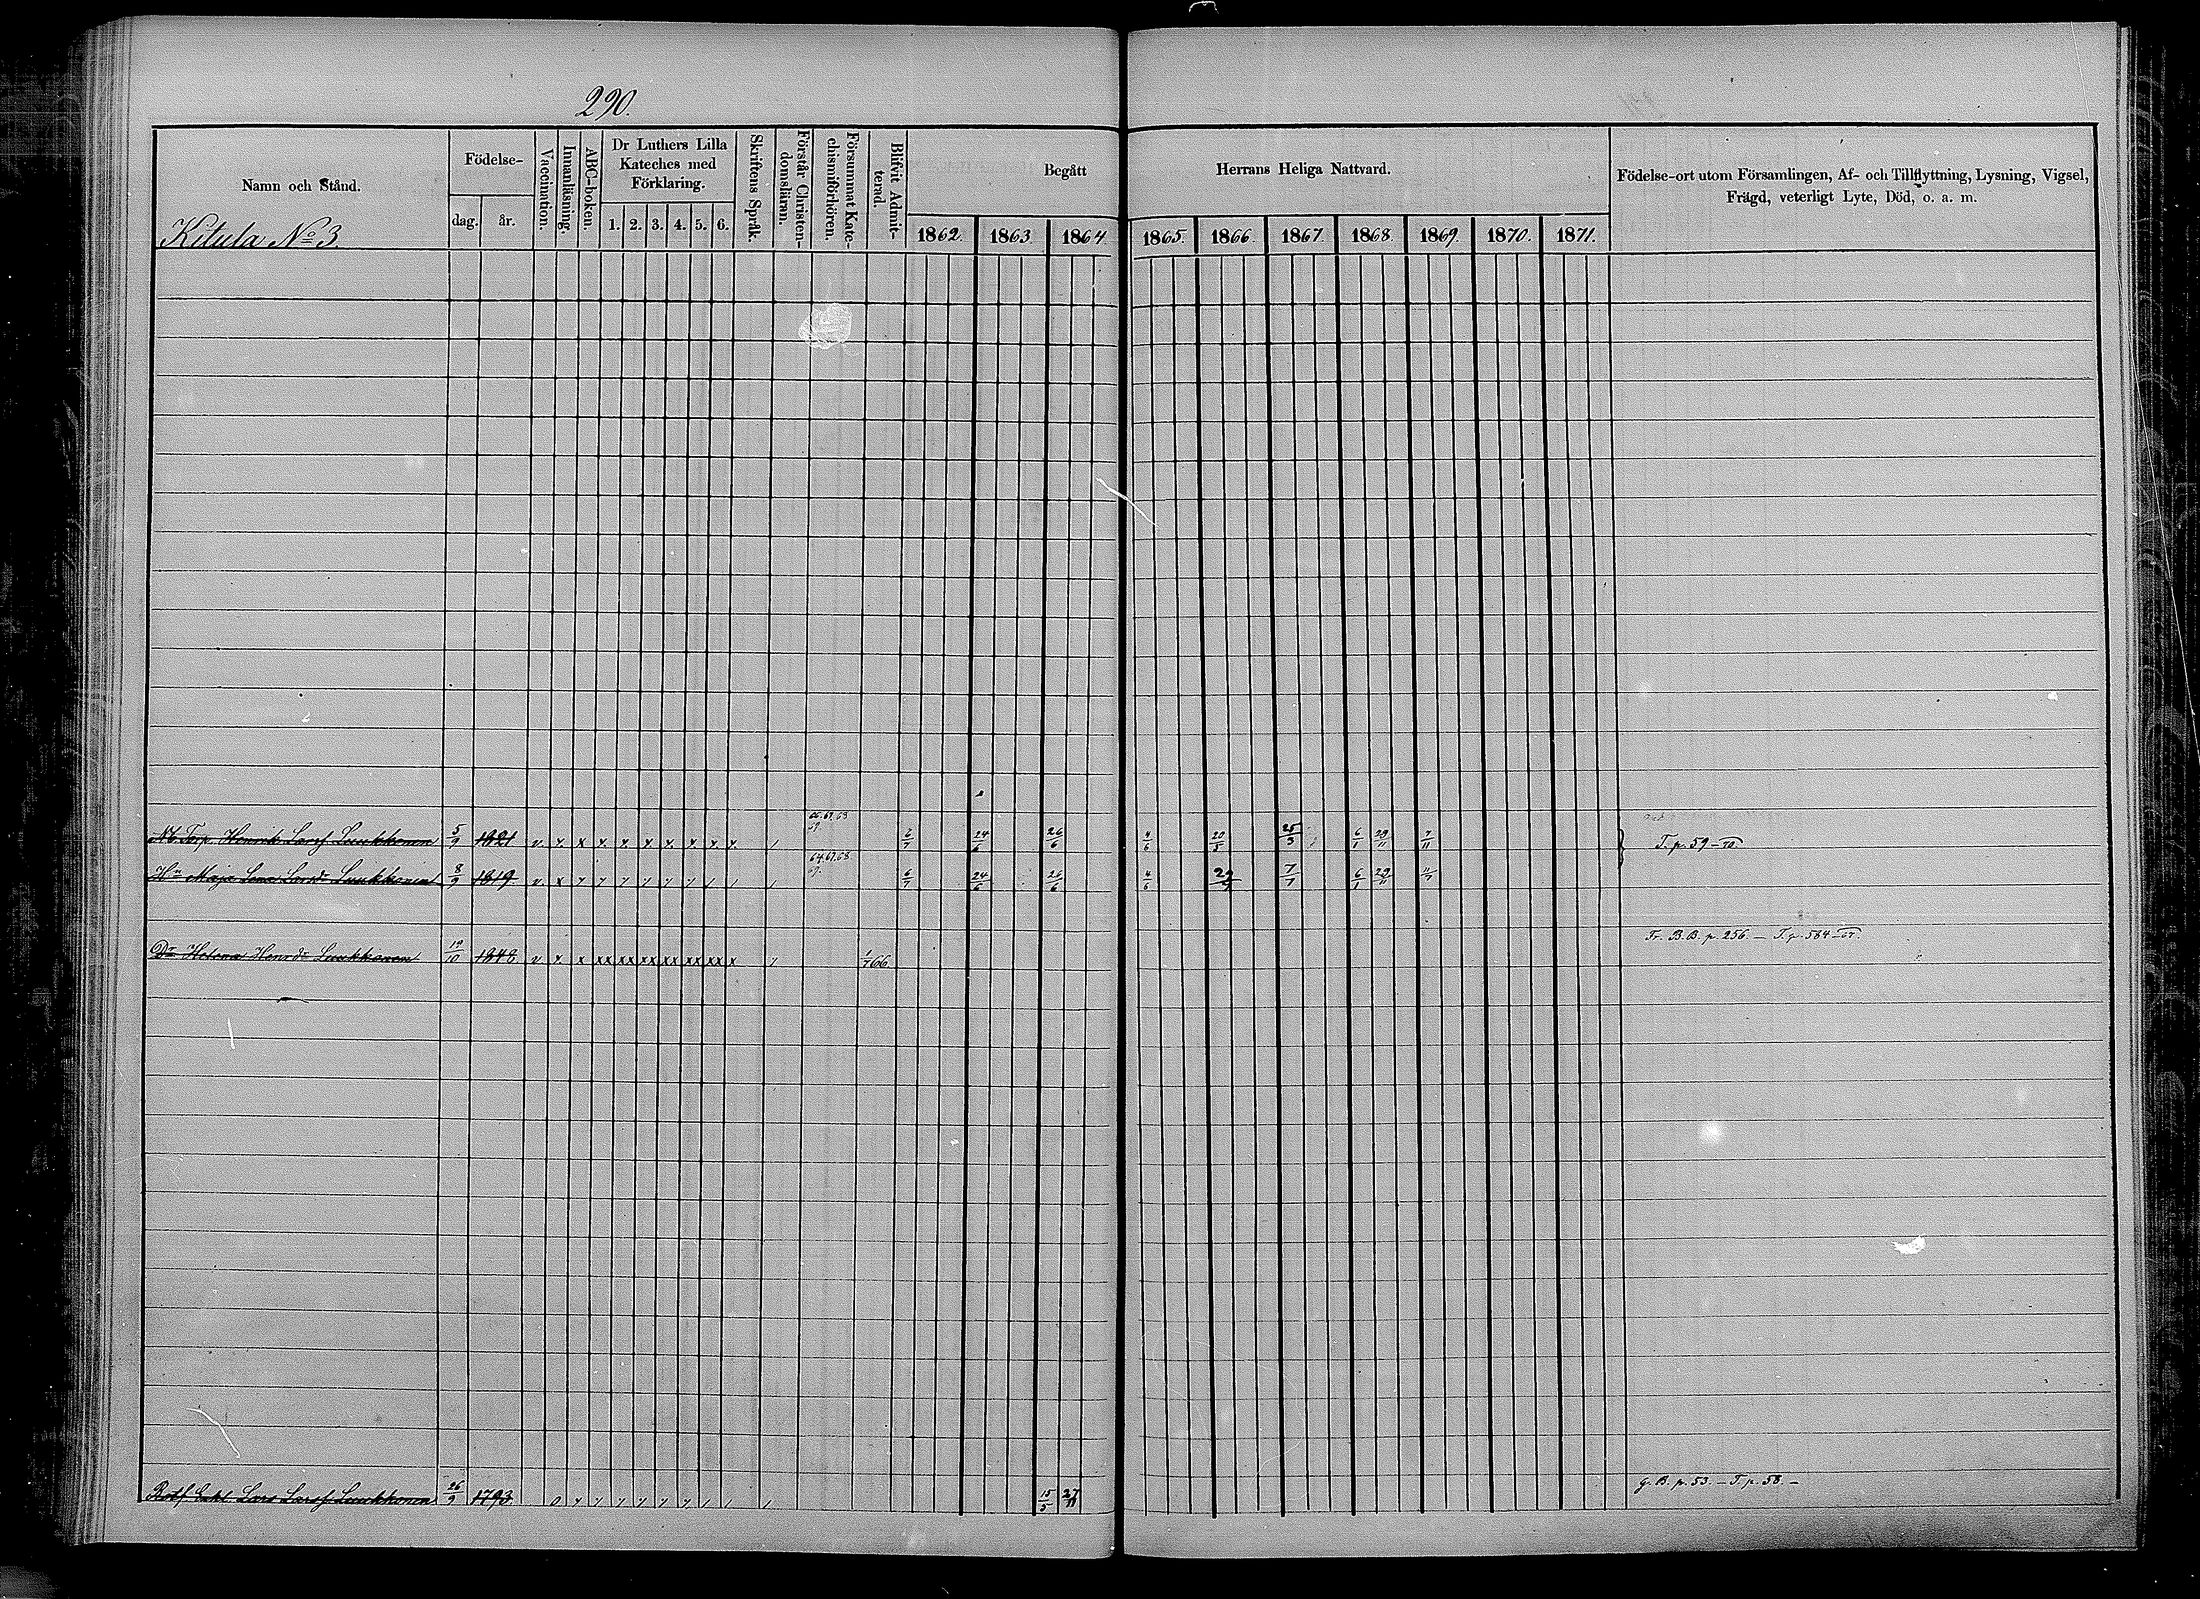 290.
Namn och Stånd.
Födelse-
dag. år.
Vaccination.
Innanläsning.
ABC-boken.
Dr Luthers Lilla
Kateches med
Förklaring.
1. 2. 3. 4. 5. 6.
Skriftens Språk.
Förstår Christen-
domsläran.
Försummat Kate-
chismiförhören.
Blifvit Admit-
terad.
Begått Herrans Heliga Nattvard.
1862. 1863 1864 1865. 1866. 1867. 1868. 1869. 1870. 1871.
Födelse-ort utom Församlingen, Af- och Tillflyttning, Lysning, Vigsel,
Frägd, veterligt Lyte, Död, o. a. m.
Kitula No 3.
66.67.68
Torp. Henrik Larsf Luukkonen 5/9 1821 v. x x x x x x x x x / 6/7 24/6 26/6 4/6 20/5 25/3 6/1 29/11 7/11 T. p. 59 - 70.
64.67.68
Hu Maja Lena Larsdr Luukkonen 8/9 1819 v. x 6/7 24/6 26/6 4/6 7/7 6/1 29/11
Fr. B. B. p. 256. - T. p. 584 -
Dr Helena Henrdr Luukkonen 19/10 1848 v x x xx xx xx xx xx xx x 1/7 66
G. B. p. 53. - T. p. 58. -
Lars Larsf Luukkonen 26/9 1793 15/5 27/11